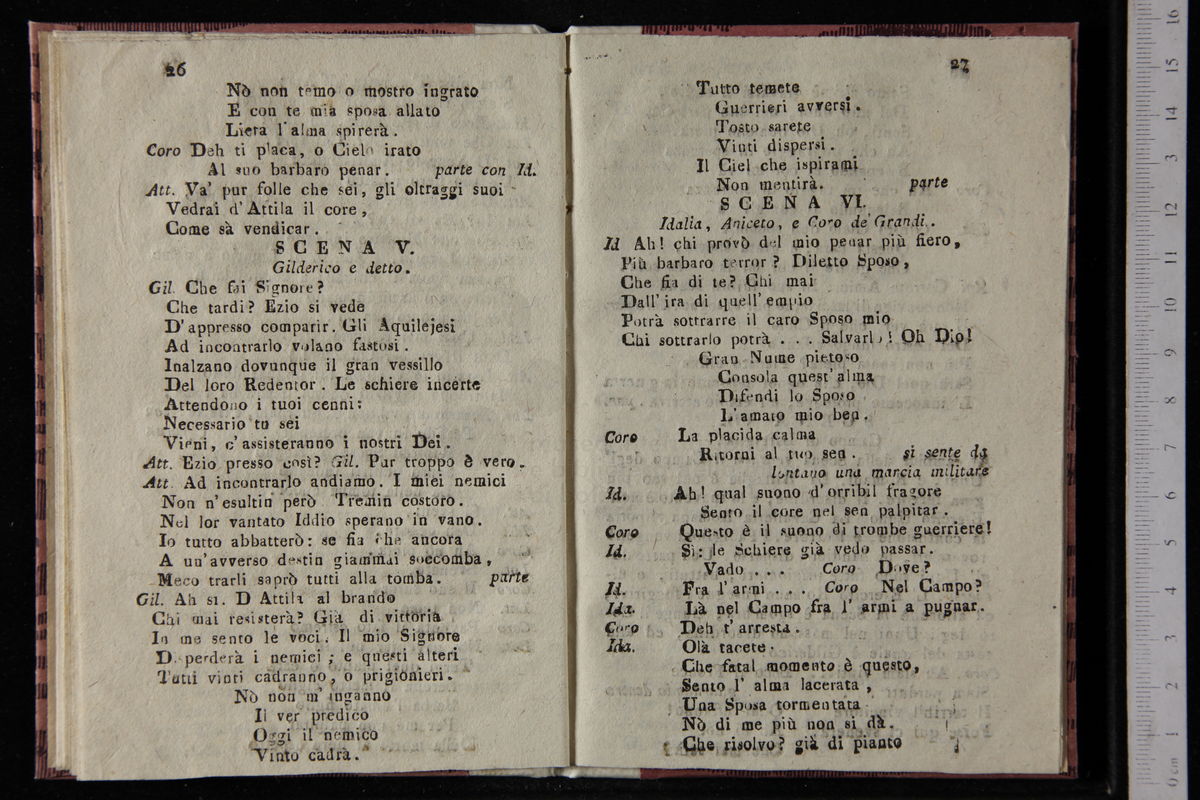 26
Nò non temo o mostro ingrato
E con te mia sposa allato
Lieta l'alma spirerà.
Coro Deh ti placa, o Cielo irato
Al suo barbaro penar. parte con Id.
Att. Va' pur folle che sei, gli oltraggi suoi
Vedrai d'Attila il core,
Come sà vendicar.
SCENA V.
Gilderico e detto.
Gil. Che fai Signore?
Che tardi? Ezio si vede
D'appresso comparir. Gli Aquilejesi
Ad incontrarlo volano fastosi.
Inalzano dovunque il gran vessillo
Del loro Redentor. Le schiere incerte
Attendono i tuoi cenni:
Necessario tu sei
Vieni, c'assisteranno i nostri Dei.
Att. Ezio presso così? Gil. Pur troppo è vero.
Att. Ad incontrarlo andiamo. I miei nemici
Non n'esultin però Tremin costoro.
Nel lor vantato Iddio sperano in vano.
Io tutto abbatterò: se fia che ancora
A un'avverso destin giammai soccomba,
Meco trarli saprò tutti alla tomba. parte
Gil. Ah si. D Attila al brando
Chi mai resisterà? Già di vittoria
In me sento le voci. Il mio Signore
Disperderà i nemici; e questi alteri
Tutti vinti cadranno, o prigionieri.
Nò non m'inganno
Il ver predico
Oggi il nemico
Vinto cadrà.
27
Tutto temete
Guerrieri avversi.
Tosto sarete
Vinti dispersi.
Il Ciel che ispirami
Non mentirà. parte
SCENA VI.
Idalia, Aniceto, e Coro de' Grandi.
Id Ah! chi provò del mio penar più fiero,
Più barbaro terror? Diletto Sposo,
Che fia di te? Chi mai
Dall'ira di quell'empio
Potrà sottrarre il caro Sposo mio
Chi sottrarlo potrà . . . Salvarlo! Oh Dio!
Gran Nume pietoso
Consola quest'alma
Difendi lo Sposo
L'amato mio ben.
Coro La placida calma
Ritorni al tuo sen. si sente da
lontano una marcia militare
Id. Ah! qual suono d'orribil fragore
Sento il core nel sen palpitar.
Coro Questo è il suono di trombe guerriere!
Id. Sì: le Schiere già vedo passar.
Vado . . . Coro Dove?
Id. Fra l'armi . . . Coro Nel Campo?
Ida. Là nel Campo fra l'armi a pugnar.
Coro Deh t'arresta.
Ida. Olà tacete.
Che fatal momento è questo,
Sento l'alma lacerata,
Una Sposa tormentata
Nò di me più non si dà.
Che risolvo? già di pianto
0 cm 1 2 3 4 5 6 7 8 9 10 11 12 13 14 15 16